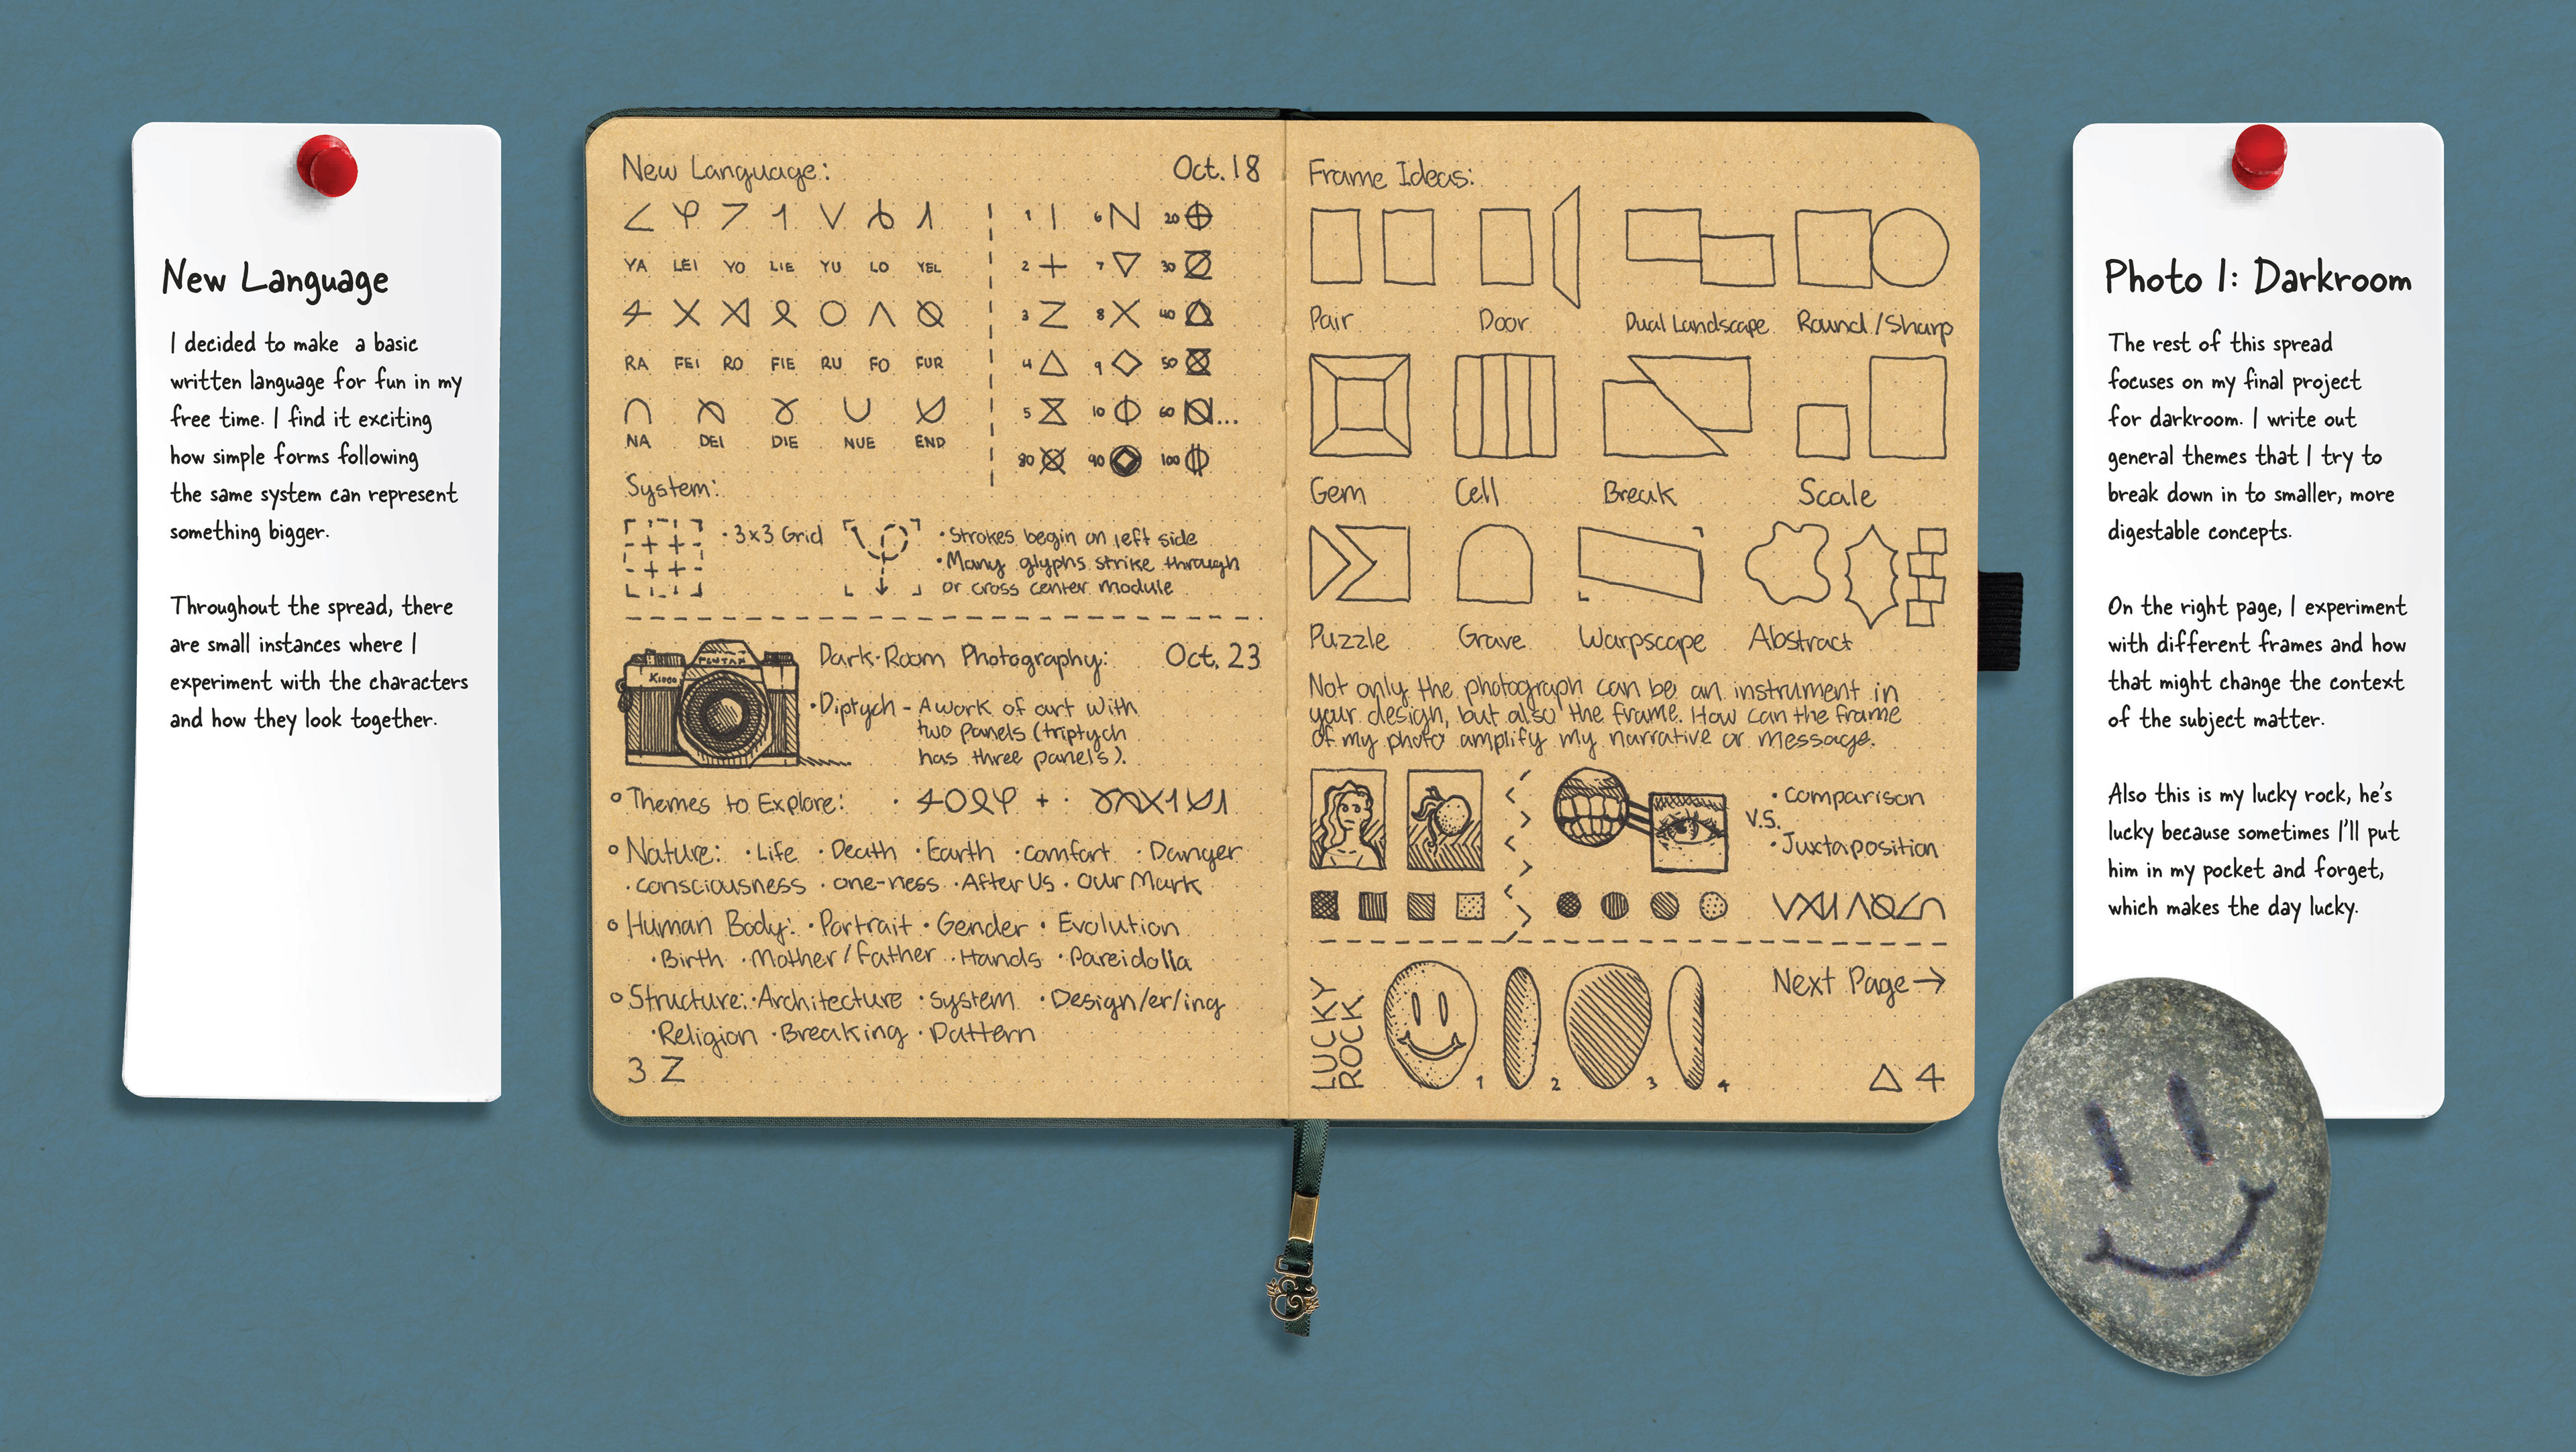 New Language
I decided to make a basic
written language for fun in my
free time. I find it exciting
how simple forms following
the same system can represent
something bigger.
Throughout the spread, there
are small instances where I
experiment with the characters
and how they look together.
New Language: Oct. 18
YA LEI YO LIE YU LO YEL
RA FEI RO FIE RU FO FUR
NA DEI DIE NUE END
1 6 20
2 7 30
3 8 40
4 9 50
5 10 60 ...
80 90 100
System:
• 3x3 Grid
• Strokes begin on left side
• Many glyphs strike through
or cross center module
PENTAX
K1000
Dark-Room Photography: Oct. 23
• Diptych - A work of art with
two panels (triptych
has three panels).
Themes to Explore:
Nature: • Life • Death • Earth • comfort • Danger
• consciousness • one-ness • After Us • Our Mark
Human Body: • Portrait • Gender • Evolution
• Birth • Mother/Father • Hands • Pareidolia
Structure: • Architecture • system • Design/er/ing
• Religion • Breaking • Pattern
3 Z
Frame Ideas:
Pair Door Dual Landscape Round/Sharp
Gem Cell Break Scale
Puzzle Grave Warpscape Abstract
Not only the photograph can be an instrument in
your design, but also the frame. How can the frame
of my photo amplify my narrative or message.
• comparison
V.S.
• Juxtaposition
LUCKY
ROCK
1 2 3 4
Next Page →
△ 4
Photo 1: Darkroom
The rest of this spread
focuses on my final project
for darkroom. I write out
general themes that I try to
break down in to smaller, more
digestable concepts.
On the right page, I experiment
with different frames and how
that might change the context
of the subject matter.
Also this is my lucky rock, he's
lucky because sometimes I'll put
him in my pocket and forget,
which makes the day lucky.